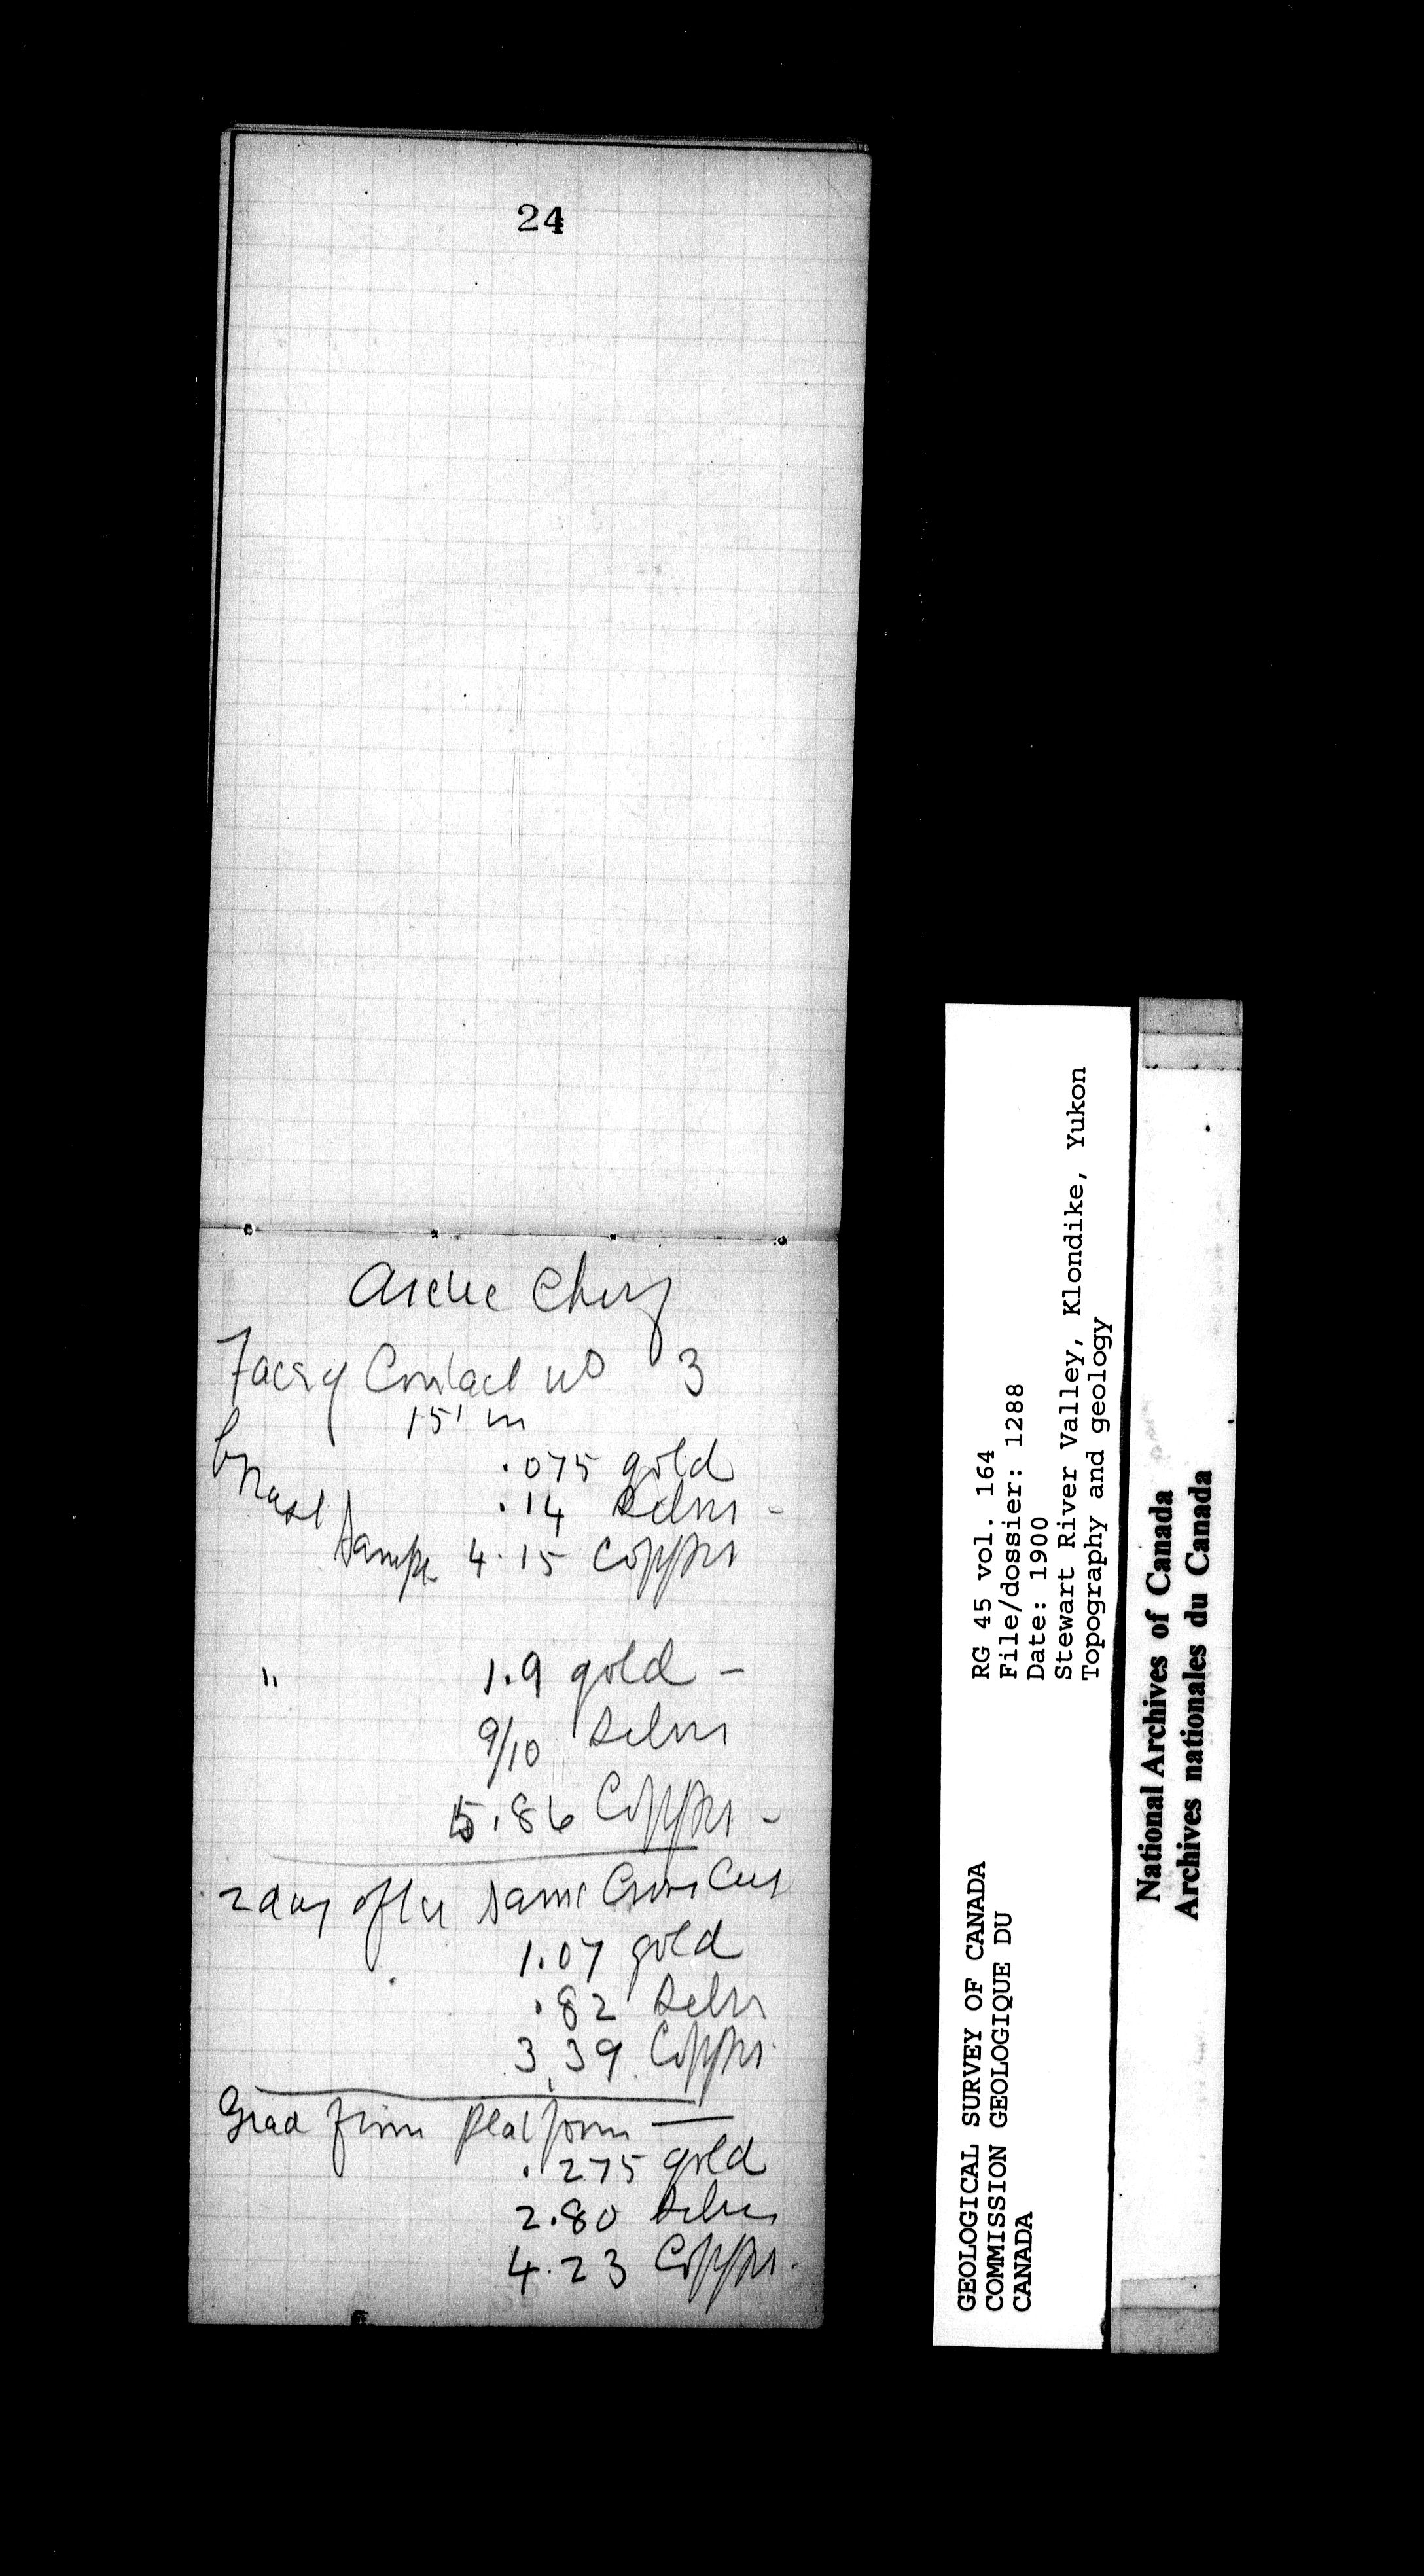 24
Arctic Chief
Face of Contact No 3
15' in
.075 gold
breast .14 Silver -
Sample 4.15 Copper
" 1.9 gold -
9/10 Silver
5.86 Copper -
2 day after same Cross Cut
1.07 gold
.82 Silver
3.39 Copper
Grad from platform —
.275 gold
2.80 Silver
4.23 Copper.
GEOLOGICAL SURVEY OF CANADA
COMMISSION GEOLOGIQUE DU
CANADA
RG 45 vol. 164
File/dossier: 1288
Date: 1900
Stewart River Valley, Klondike, Yukon
Topography and geology
National Archives of Canada
Archives nationales du Canada